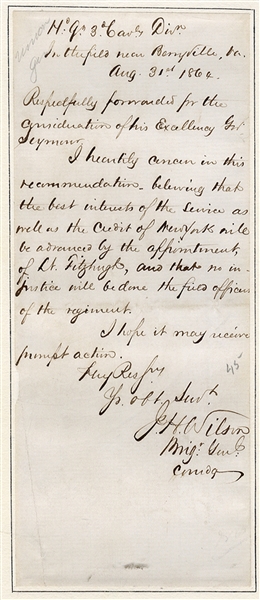 Hd Qrs 3d Cavy Divn
In the field near Berryville, Va.
Aug. 31st 1864.
Respectfully forwarded for the
consideration of his Excellency Gov
Seymour
I heartily concur in this
recommendation - believing that
the best interests of the Service as
well as the Credit of New York will
be advanced by the appointment,
of Lt. Fitzhugh, and that no in-
justice will be done the field officers
of the regiment.
I hope it may receive
prompt action.
Very Resfy
Yr. obt Servt.
J.H. Wilson
Brigr Genl.
Comdg
45